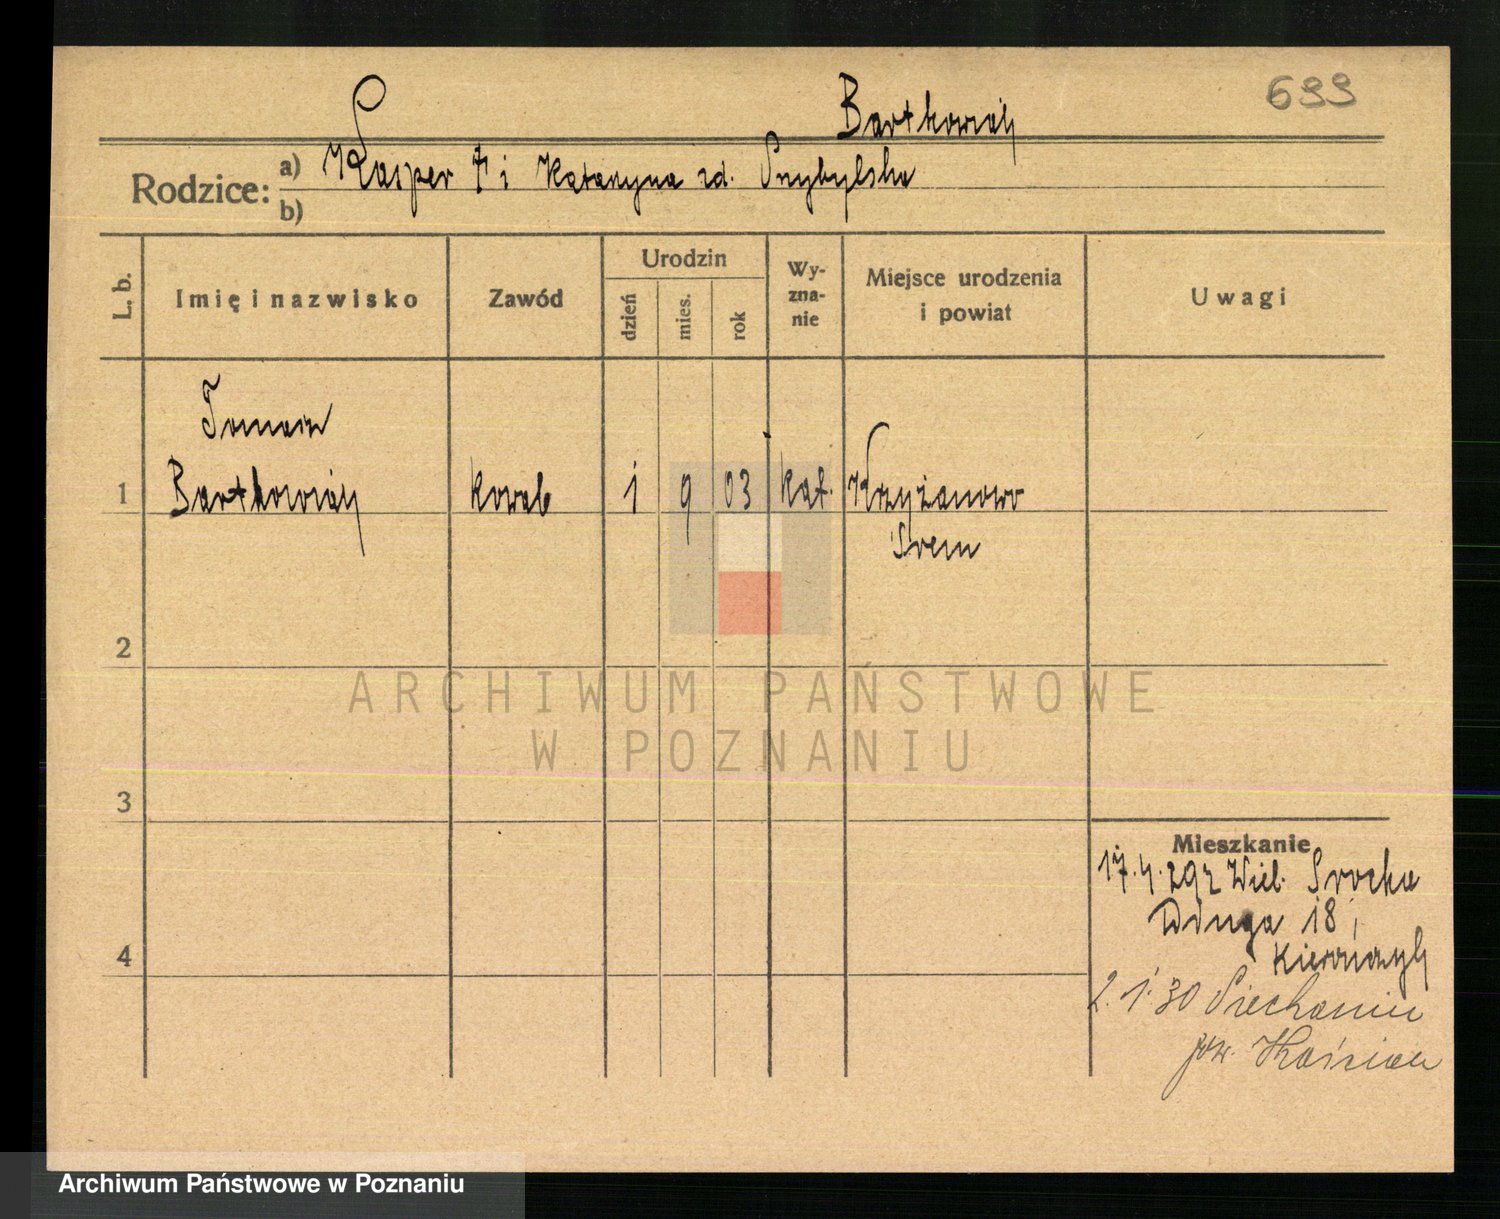 699
Bartkowiak
Rodzice: a) Kasper † i Katarzyna zd. Przybylska
b)
L. b.
Imię i nazwisko
Zawód
Urodzin
dzień
mies.
rok
Wy-
zna-
nie
Miejsce urodzenia
i powiat
Uwagi
Tomasz
1 Bartkowiak kowal 1 9 03 kat. Krzyżanowo
Śrem
2
3
4
Mieszkanie
17.4.29 z Wiel. Srocka
Długa 18 i
Kierończyk
2.1.30 Piechanin
pow. Kościan
ARCHIWUM PAŃSTWOWE
W POZNANIU
Archiwum Państwowe w Poznaniu